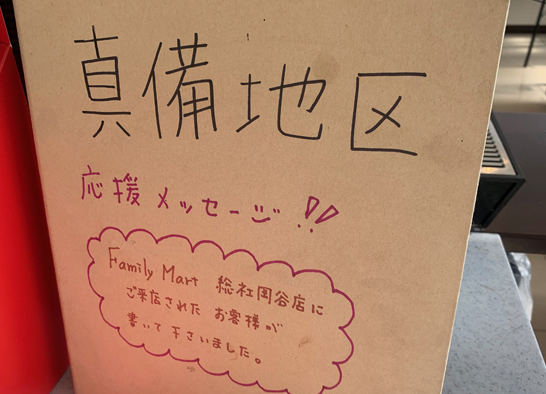 真備地区
応援メッセージ!!
Family Mart 総社岡谷店に
ご来店された お客様が
書いて下さいました。